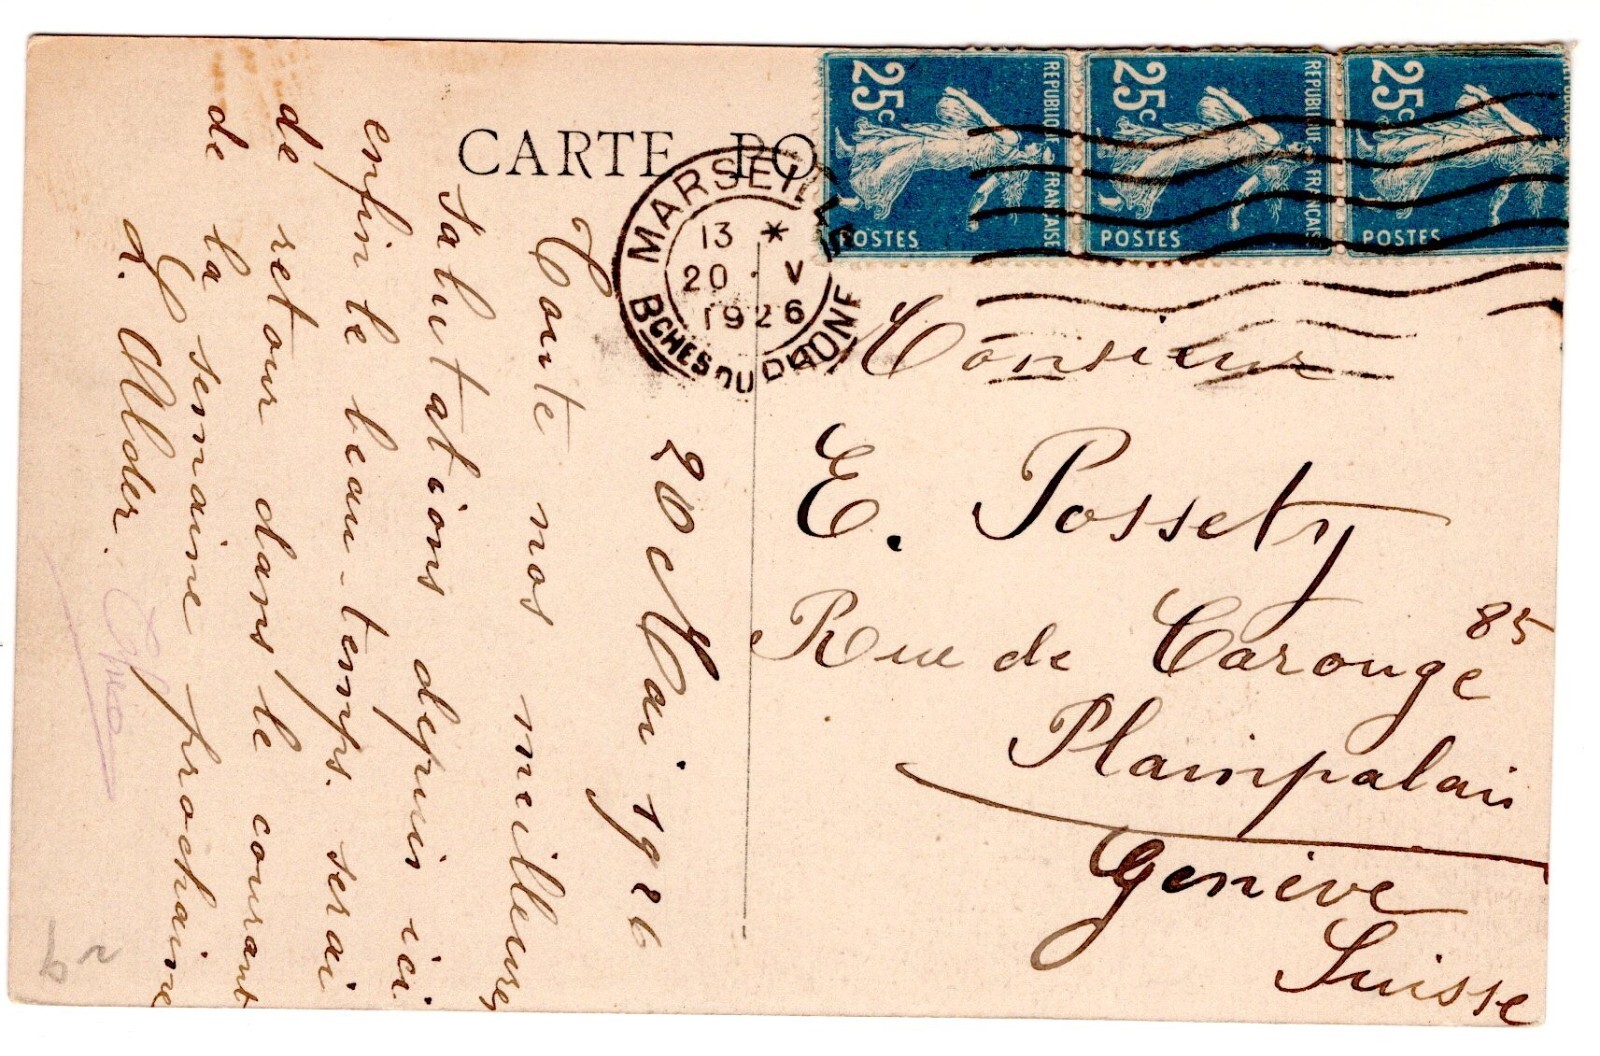 CARTE PO
MARSEILLE
13 *
20 · V
1926
BCHES DU RHONE
25c
REPUBLIQUE FRANÇAISE
POSTES
25c
REPUBLIQUE FRANÇAISE
POSTES
25c
POSTES
20 Mai. 1926
Toute nos meilleures
salutations depuis ici
enfin le beau-temps. serai
de retour dans le courant
de la semaine prochaine
A. Alder.
Monsieur
E. Possety
Rue de Carouge 85
Plainpalais
Genève
Suisse